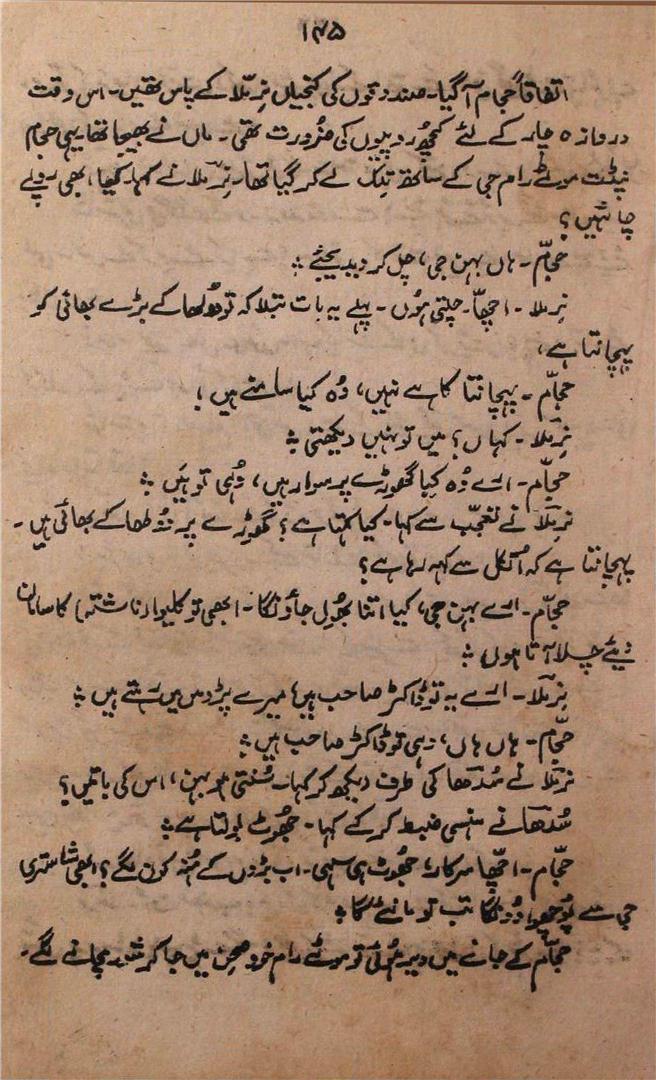 ۱۴۵
اتفاقاً حجام آ گیا۔ صندوقوں کی کنجیاں نِرملا کے پاس تھیں۔ اس وقت
دروازہ چار کے لئے کچھ روپیوں کی ضرورت تھی۔ ماں نے بھیجا تھا یہی حجام
پنڈت موٹے رام جی کے ساتھ تلک لے کر گیا تھا۔ نِرملا نے کہا۔ کیا، ابھی روپئے
چاہئیں؟
حجام۔ ہاں بہن جی، چل کر دیدیجئے ؞
نِرملا۔ اچھا۔ چلتی ہوں۔ پہلے یہ بات بتلا کہ تو دولھا کے بڑے بھائی کو
پہچانتا ہے،
حجام۔ پہچانتا کاہے نہیں، وُہ کیا سامنے ہیں!
نِرملا۔ کہاں؟ میں تو نہیں دیکھتی ؞
حجام۔ ارے وُہ کیا گھوڑے پر سوار ہیں، وُہی تو ہیں ؞
نرملا نے تعجب سے کہا۔ کیا کہتا ہے؟ گھوڑے پر دولھا کے بھائی ہیں۔
پہچانتا ہے کہ اُٹکل سے کہہ رہا ہے؟
حجام۔ ارے بہن جی، کیا اتنا بھُول جاؤنگا۔ ابھی تو کلیوا (ناشتہ) کا سامان
دیئے چلا آتا ہوں ؞
نرملا۔ ارے یہ تو ڈاکٹر صاحب ہیں! میرے پڑوس میں رہتے ہیں ؞
حجام۔ ہاں ہاں، وہی تو ڈاکٹر صاحب ہیں ؞
نرملا نے سُدھا کی طرف دیکھ کر کہا۔ سُنتی ہو بہن، اس کی باتیں؟
سُدھا نے ہنسی ضبط کر کے کہا۔ جھوٹ بولتا ہے ؞
حجام۔ اچھا سرکار، جھوٹ ہی سہی۔ اب بڑوں کے مُنہ کون لگے؟ ابھی شاستری
جی سے پُوچھوا دُونگا تب تو مانئے گا ؞
حجام کے جانے میں دیر ہُوئی تو موٹے رام خود صحن میں جا کر شور مچانے لگے۔